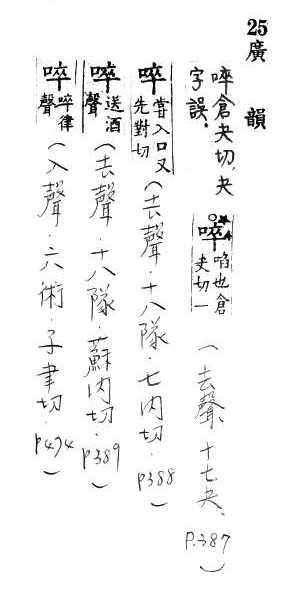 25廣韻
啐倉夬切,夬字誤。
啐啗也倉夬切一(去聲、十七夬、P.387)
啐嘗入口又先對切(去聲.十八隊.七內切.P388)
啐送酒聲(去聲.十八隊.蘇內切.P389)
啐啐律聲(入聲.六術.子聿切.P474)